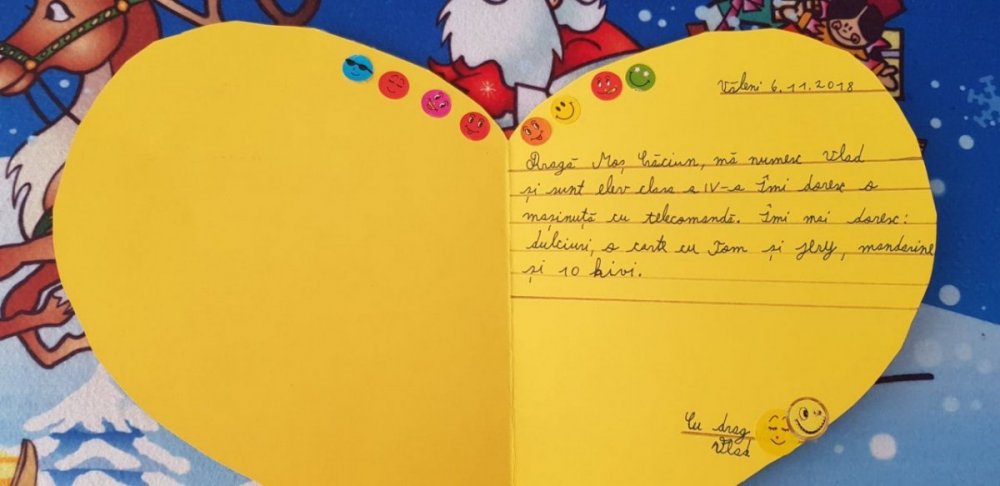 Văleni 6.11.2018
Dragă Moș Crăciun, mă numesc Vlad
și sunt elev clasa a IV-a Îmi doresc o
mașinuță cu telecomandă. Îmi mai doresc:
dulciuri, o carte cu Tom și Jery, mandarine
și 10 kivi.
Cu drag
Vlad